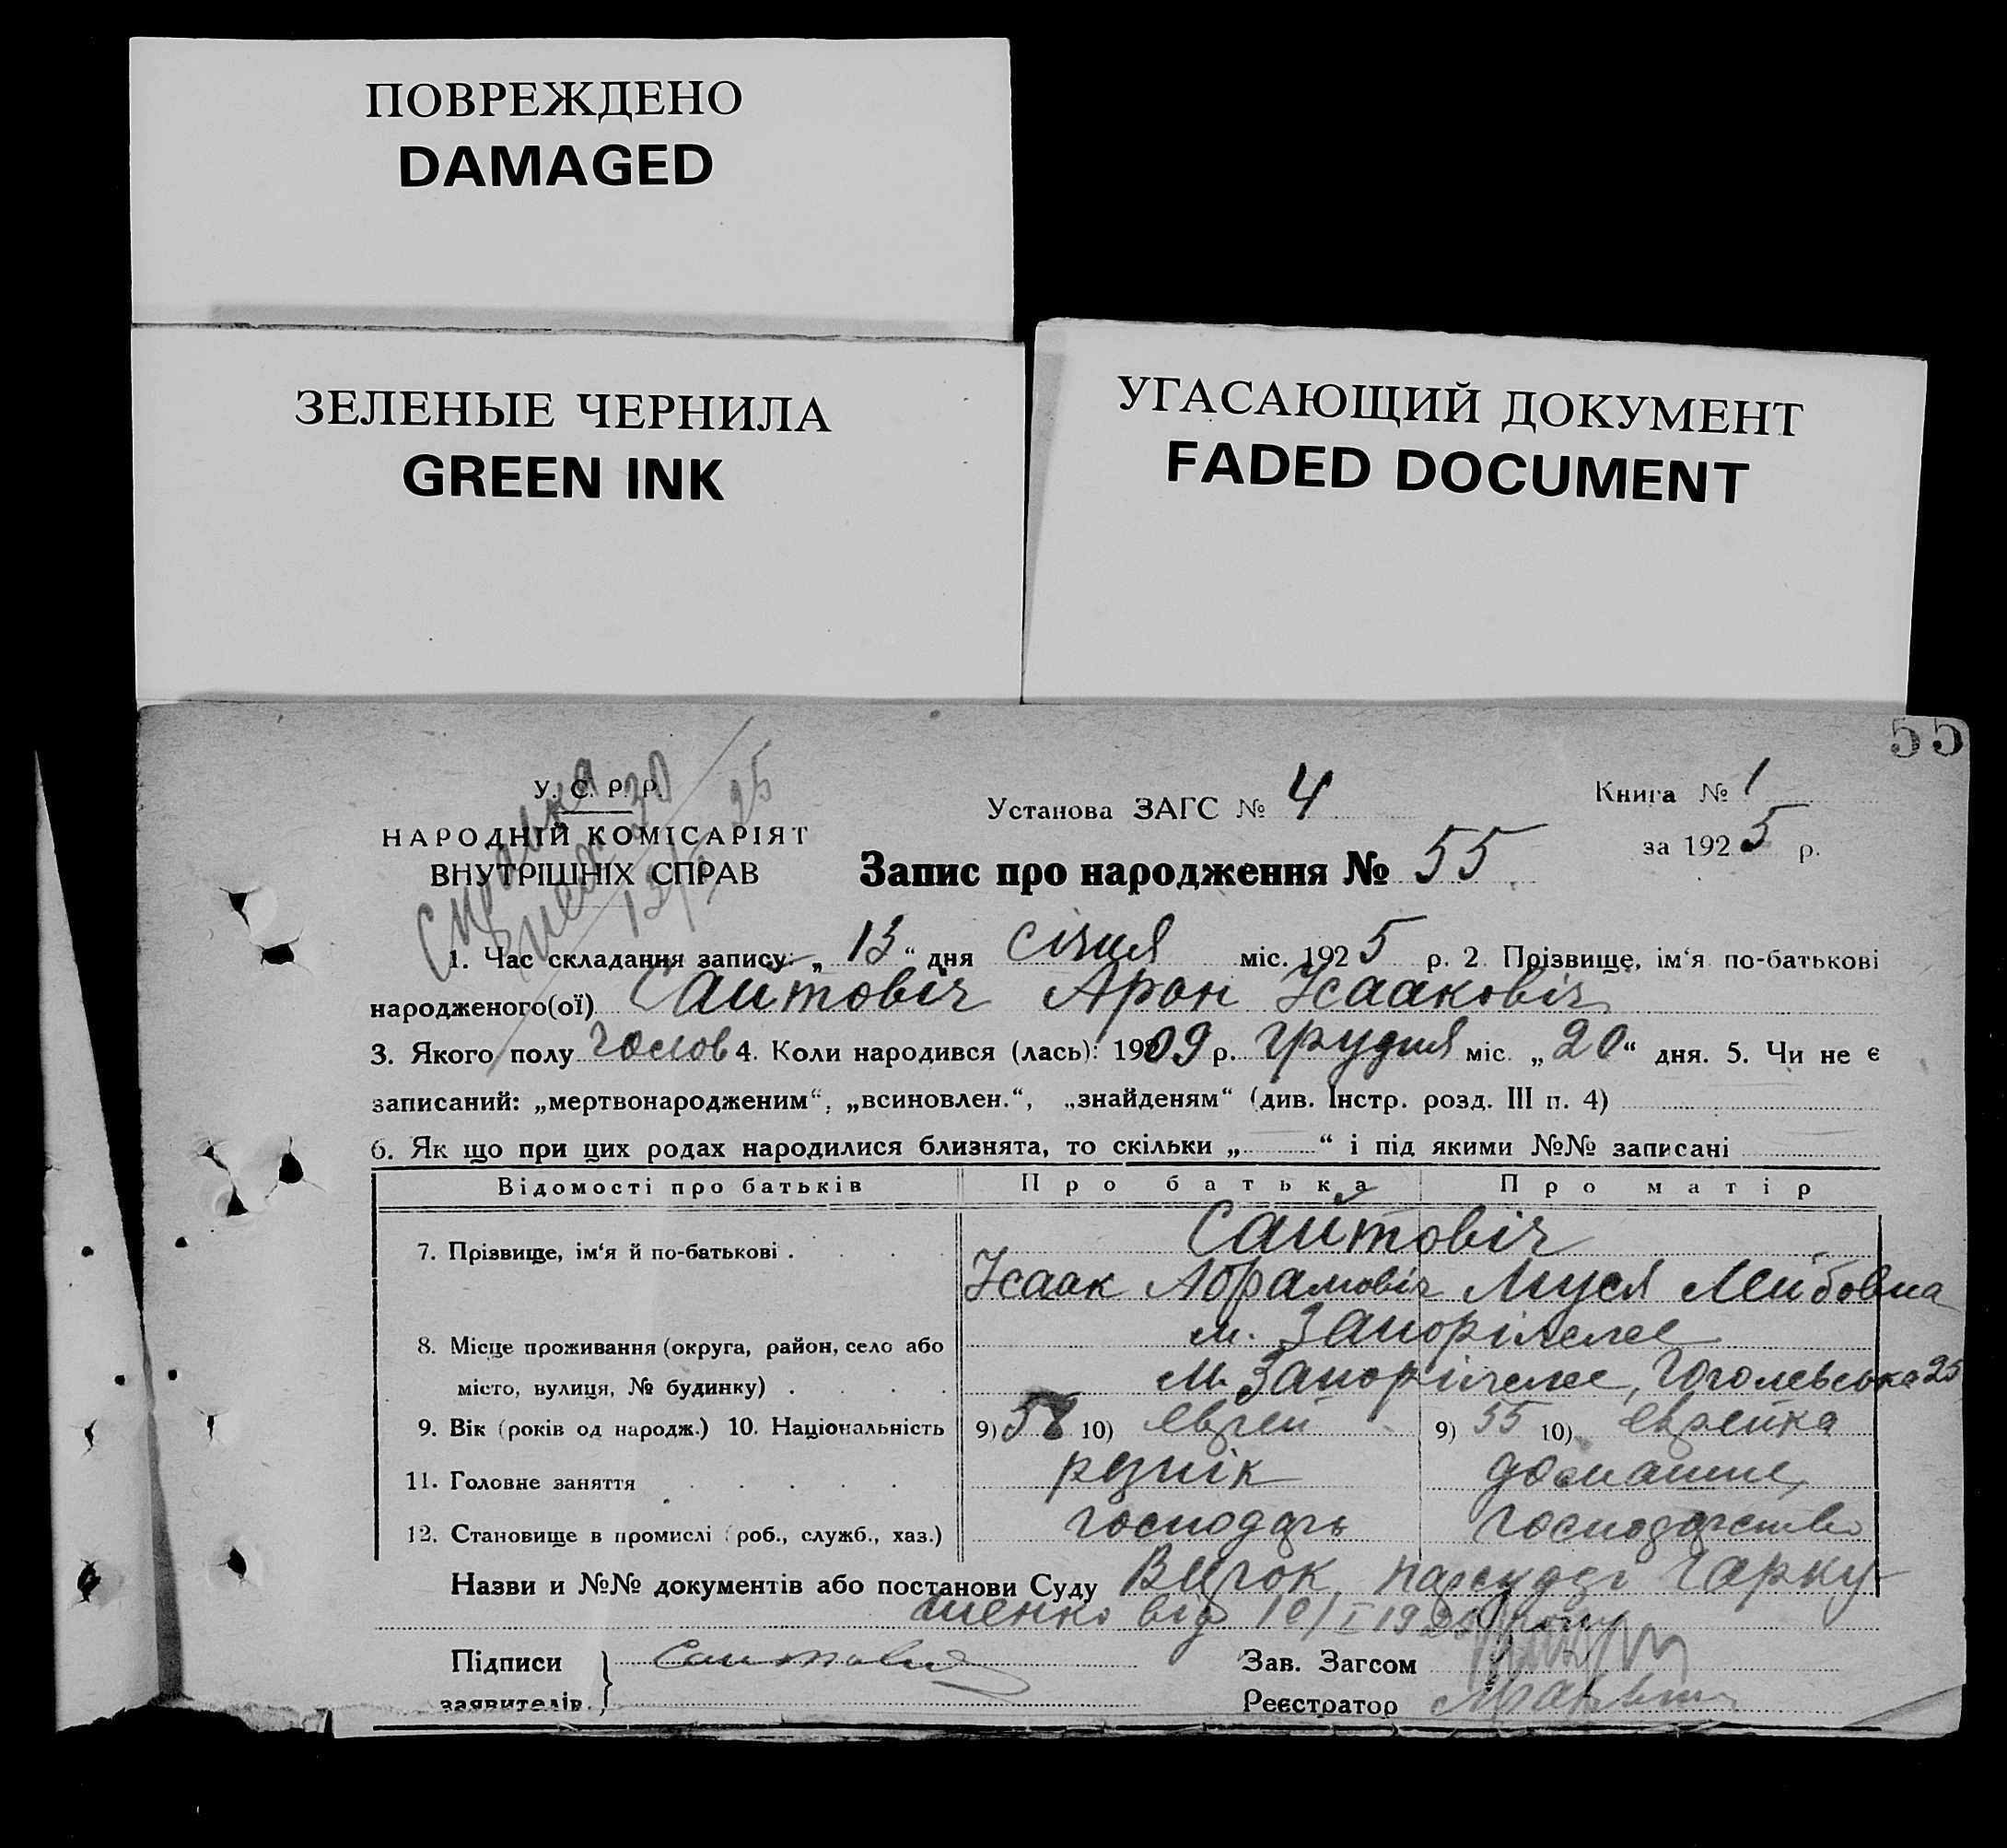 ПОВРЕЖДЕНО
DAMAGED
ЗЕЛЕНЫЕ ЧЕРНИЛА
GREEN INK
УГАСАЮЩИЙ ДОКУМЕНТ
FADED DOCUMENT
55
У. С. Р. Р.
НАРОДНІЙ КОМІСАРІЯТ
ВНУТРІШНІХ СПРАВ
Установа ЗАГС № 4
Книга № 1
за 1925 р.
Запис про народження № 55
1. Час складання запису: „ 13 “ дня січня міс. 1925 р. 2. Прізвище, ім‘я по-батькові
народженого(ої) Саітовіч Арон Ісааковіч
3. Якого полу чолов 4. Коли народився (лась): 1909 р. грудня міс. „ 20 “ дня. 5. Чи не є
записаний: „мертвонародженим“, „всиновлен.“, „знайденям“ (див. Інстр. розд. III п. 4)
6. Як що при цих родах народилися близнята, то скільки „ “ і під якими №№ записані
Відомості про батьків Про батька Про матір
7. Прізвище, ім‘я й по-батькові . Сайтовіч
Ісаак Абрамовіч Муся Лейбовна
м. Запоріжже
8. Місце проживання (округа, район, село або
місто, вулиця, № будинку) . м. Запоріжже, Гоголевська 25
9. Вік (років од народж.) 10. Національність 9) 58 10) єврей 9) 55 10) єврейка
11. Головне заняття різнік домашнє
12. Становище в промислі (роб., служб., хаз.) господарь господарство
Назви и №№ документів або постанови Суду Вирок нарсудді Гарку-
шенко від 10/I 1925 року
Підписи
заявителів. Саитович
Зав. Загсом
Реєстратор